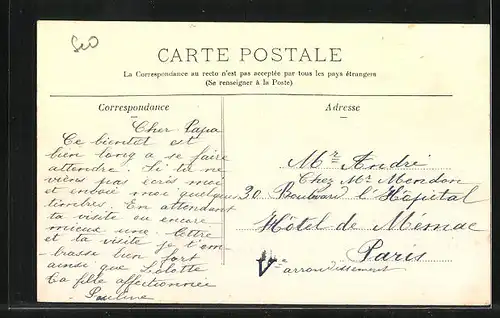 CARTE POSTALE
La Correspondance au recto n'est pas acceptée par tous les pays étrangers
(Se renseigner à la Poste)
Correspondance
Cher Papa
Ce bientot est
bien long a se faire
attendre. Si tu ne
viens pas ecris moi
et envoie moi quelques
timbres. En attendant
ta visite ou encore
mieux une lettre
et ta visite je t'em-
brasse bien fort
ainsi que Lolotte
Ta fille affectionnée
Pauline
Adresse
Mr André
Chez Mr Meredon
30 Boulevard l'Hôpital
Hôtel de
Paris
Ve arrondissement